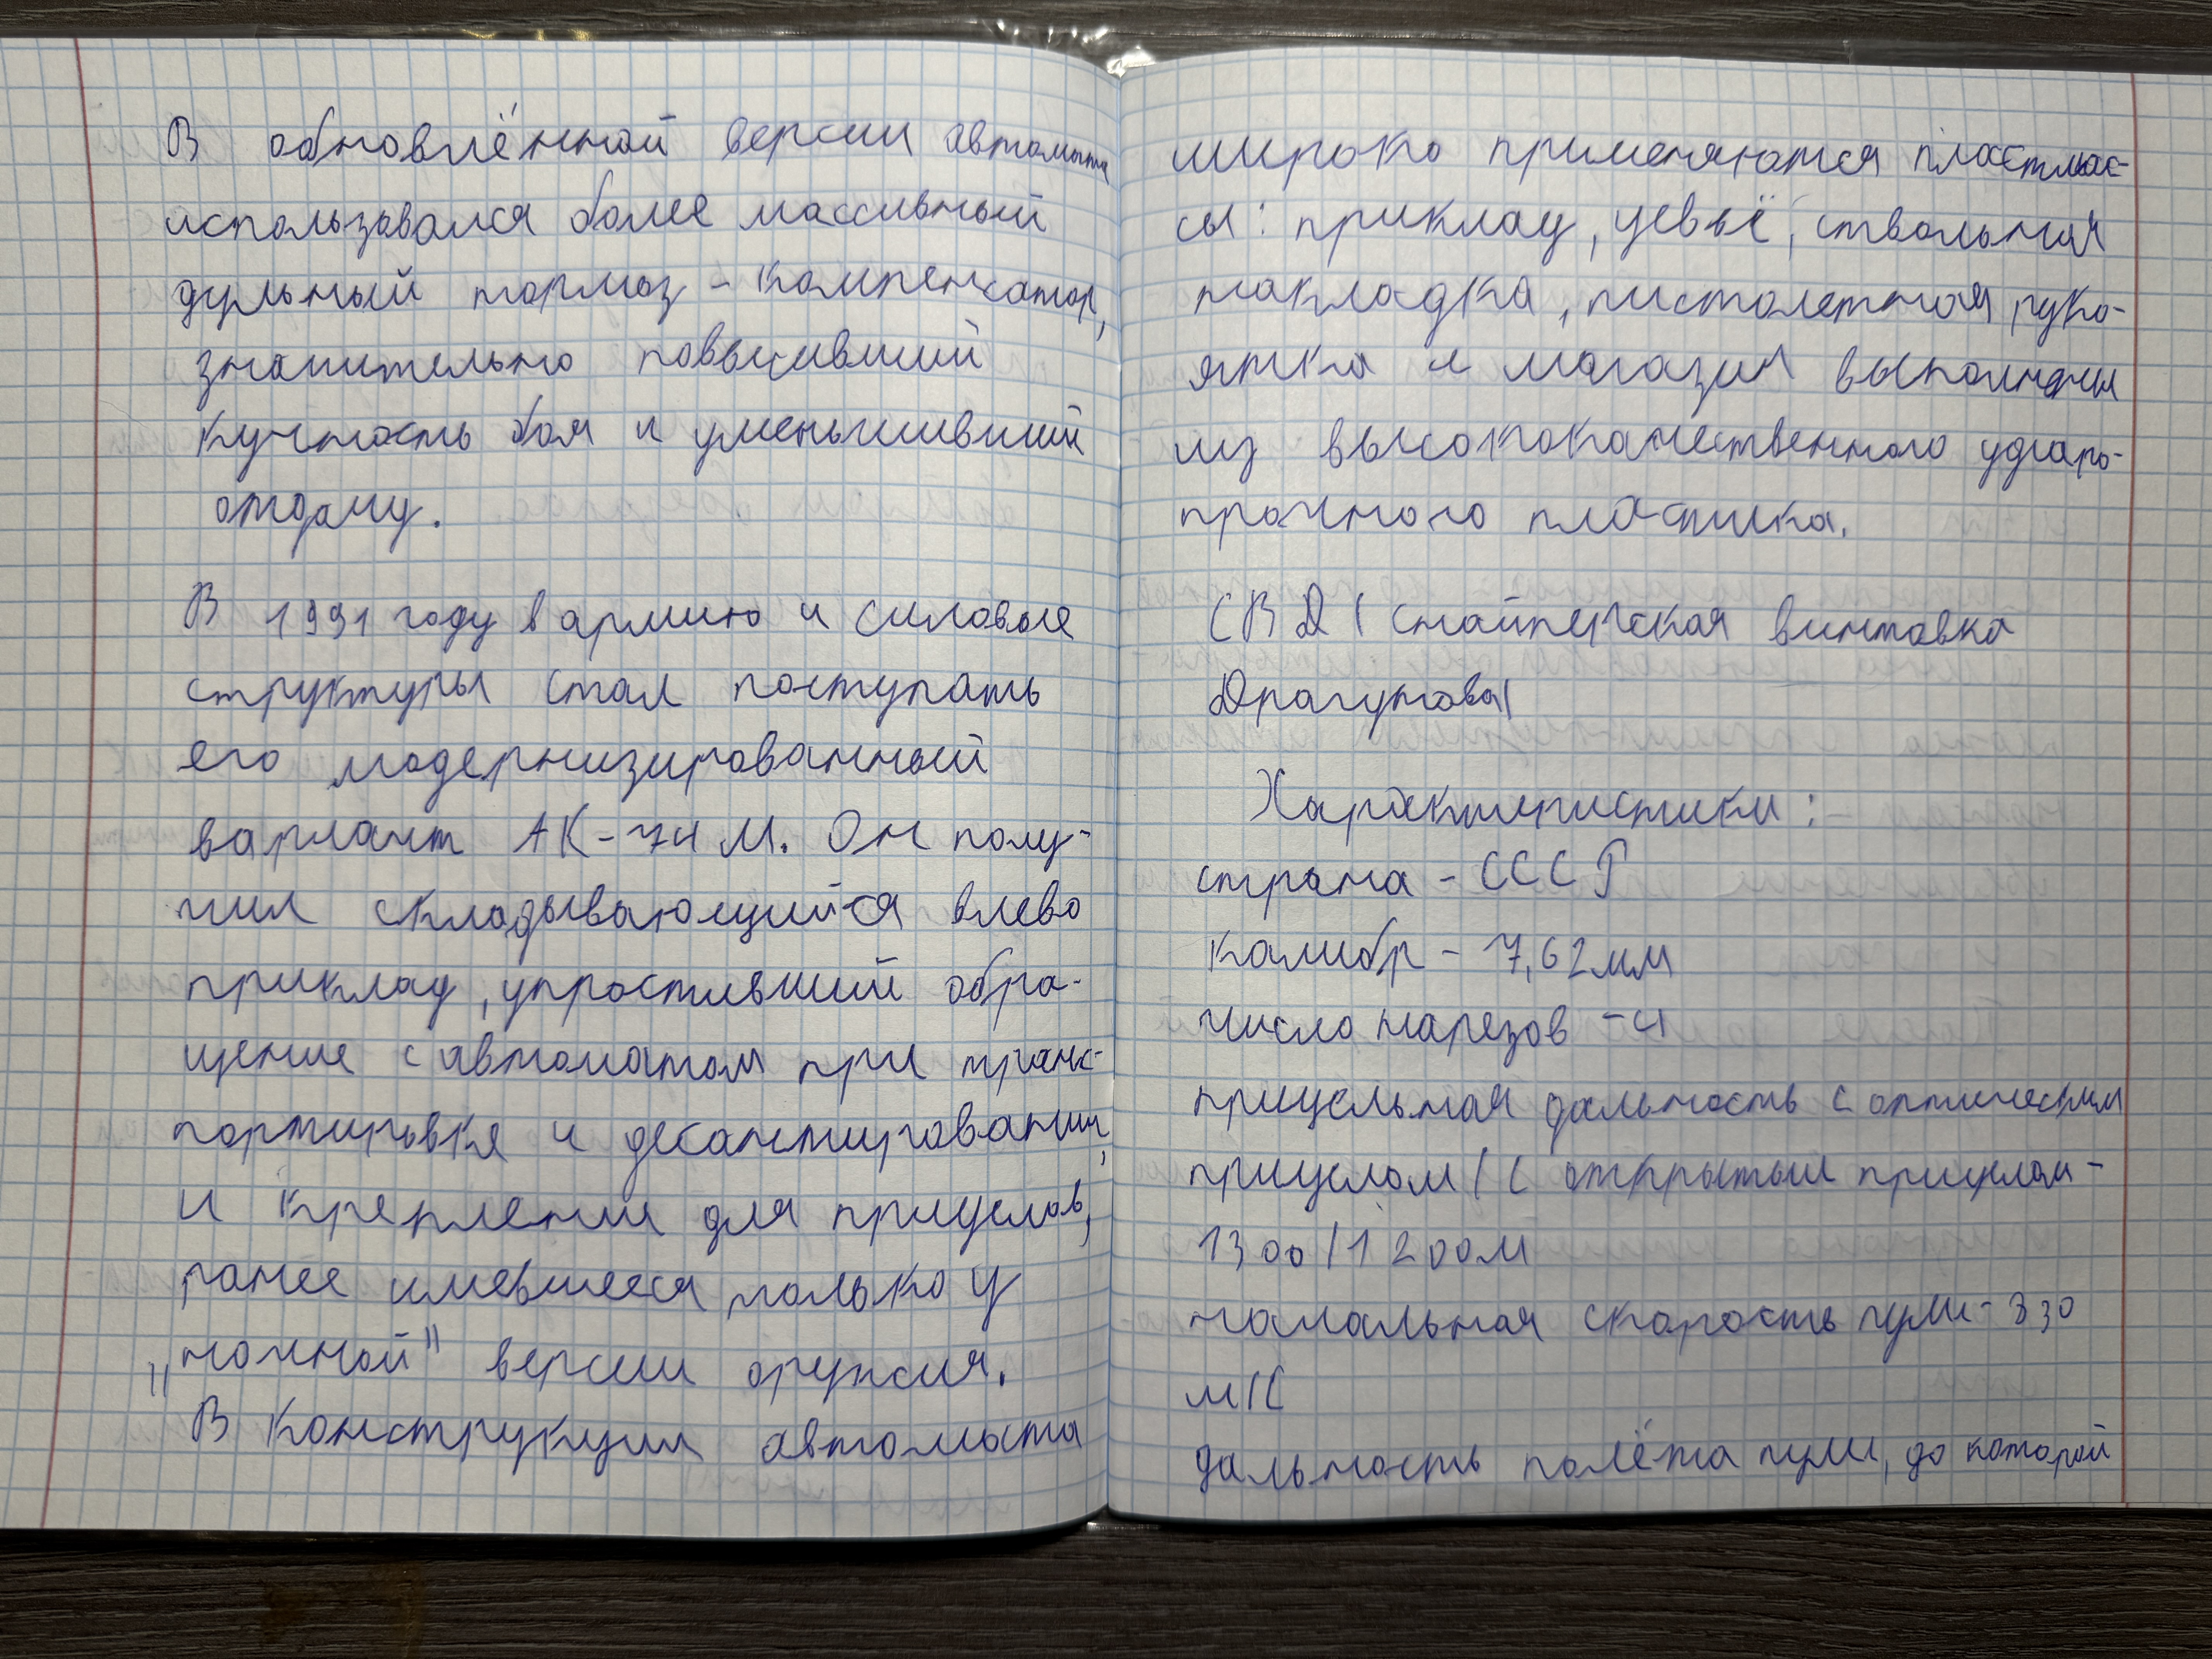 В обновлённой версии автомата
использовался более массивный
дульный тормоз - компенсатор,
значительно повысивший
кучность боя и уменьшивший
отдачу.
В 1991 году в армию и силовые
структуры стал поступать
его модернизированный
вариант АК-74 М. Он полу-
чил складывающийся влево
приклад, упростивший обра-
щение с автоматом при транс-
портировке и десантировании,
и крепление для прицелов,
ранее имевшееся только у
„ночной" версии оружия.
В конструкции автомата
широко применяются пластмас-
сы: приклад, цевьё, ствольная
накладка, пистолетная руко-
ятка и магазин выполнены
из высококачественного ударо-
прочного пластика.
СВД ( снайперская винтовка
Драгунова)
Характиристики:
страна - СССР
калибр - 7,62мм
число нарезов - 4
прицельная дальность с оптическим
прицелом / с открытым прицелом -
1300/1200м
начальная скорость пули - 830
м/с
дальность полёта пули, до которой